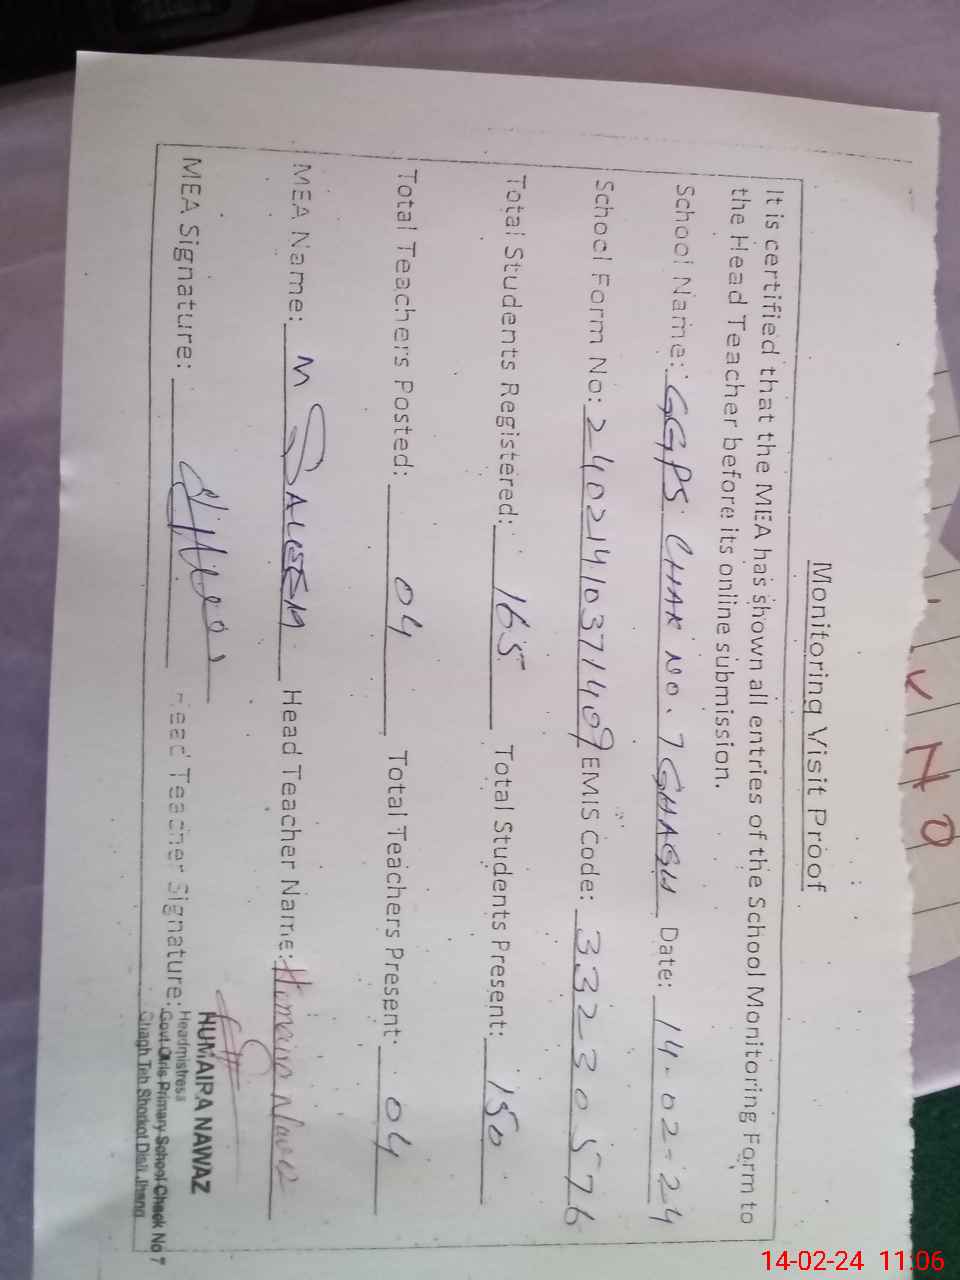 Monitoring Visit Proof
It is certified that the MEA has shown all entries of the School Monitoring Form to
the Head Teacher before its online submission.
School Name: GGPS CHAK NO. 7 GHAGH Date: 14-02-24
School Form No: 24021410371409 EMIS Code: 33230576
Total Students Registered: 165 Total Students Present: 150
Total Teachers Posted: 04 Total Teachers Present: 04
MEA Name: M SALEEM Head Teacher Name: Humaira Nawaz
MEA Signature: Head Teacher Signature:
HUMAIRA NAWAZ
Headmistress
Govt Girls Primary School Chack No 7
Ghagh Teh Shorkot Distt Jhang
14-02-24 11:06